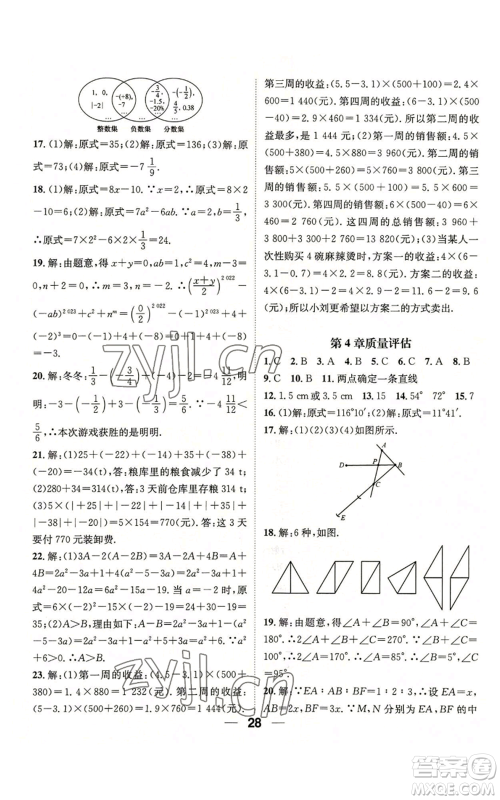 1, 0,
|-2|
-(+8),
-7
-3/4,
-1.5,
-20%
-(-1/2),
4/5, 0.38
整数集 负数集 分数集
17. (1)解:原式=35;(2)解:原式=63;(3)解:原
式=73;(4)解:原式=-7 1/9.
18. (1)解:原式=8x-10. ∵x=2,∴原式=8×2
-10=6. (2)解:原式=7a²-6ab. ∵a=2,b=1/3
,∴原式=7×2²-6×2×1/3=24.
19. 解:由题意,得 x+y=0,mn=1,a+b=0,m=
0,n+2=0,∴n=-2,∴(x+y/2)^2 022-
(-ab)^2 023+n^m=(0/2)^2 022-(-ab)^2 023+
(-2)³=0-1+(-8)=-9.
20. 解:冬冬:1/3-(-3/4)+(-1/2)-(-1/6)=3/4,明
明:-3-(-9/2)+(-1)-(-1/3)=5/6,∵3/4<
5/6,∴本次游戏获胜的是明明.
21. 解:(1)25+(-22)+(-14)+35+(-38)+
(-20)=-34(t),答:粮库里的粮食减少了 34 t;
(2)280+34=314(t),答:3 天前仓库里存粮是
314 t;(3)5×(|25|+|-22|+|-14|+|35|+
|-38|+|-20|)=5×154=770(元),答:这 3 天
要付 770 元装卸费.
22. 解:(1)3A-2(A-2B)=3A-2A+4B=A+
4B=2a²-a+3+4(a²-5-3a)=2a²-a+3+
4a²-20-12a=6a²-13a-17. 当 a=-2 时,
原式=6×(-2)²-13×(-2)-17=24+26-17=33;
(2)A>B,理由如下:A-B=2a²-a+3-(a²-5
-a)=2a²-a+3-a²+5+a=a²+8. ∵a²≥
0,∴A>B.
23. 解:(1)第一周的收益:(4.5-3.1)×(500+
380)=1.4×880=1 232(元). 第二周的收益:
(5-3.1)×(500+200)=1.9×700=1 330(元).
第三周的收益:(5.5-3.1)×(500+100)=2.4×
600=1 440(元). 第四周的收益:(6-3.1)×(500
-40)=2.9×460=1 334(元). ∴第三周的收
益最多,是 1 440 元. (2)第一周的销售额:4.5×
(500+380)=4.5×880=3 960(元). 第二周的
销售额:5×(500+200)=5×700=3 500(元).
第三周的销售额:5.5×(500+100)=5.5×600
=3 300(元). 第四周的销售额:6×(500-40)=
6×460=2 760(元). ∴这四周的销售额:3 960+
3 500+3 300+2 760=13 520(元). (3)当某人一
次性购买 4 碗麻辣烫时,方案一的收益:(6-
3.1)+(6-0.7-3.1)×3=9.5(元). 方案二的收
益:(6-3.1)×4-2=9.6(元). ∵9.5<9.6,
∴方案二的收益大于方案一的收益. ∵小刘要
求利润最大,所以小刘更希望以方案二的方式卖出.
第 4 章质量评估
1. C 2. B 3. A 4. B 5. C 6. C 7. A 8. B
9. C 10. B 11. 两点确定一条直线
12. 1.5 cm或3.5 cm 13. 14 14. 54° 72° 15. 7
16. (1)解:原式=116°10′;(2)解:原式=11°41′.
17. 解:(1)(2)(3)(4)如图所示.
A
P
D
B
C
E
18. 解:6 种,如图.
19. 解:由题意,得∠A+∠B=90°,∠A+∠C=
180°,∴2∠A+∠B+∠C=270°. ∵∠B+∠C
=100°,∴2∠A=170°,∴∠A=85°,∴∠B=5°,
∠C=95°.
20. 解:∵EA∶AB∶BF=1∶2∶3,∴设 EA=x,则
AB=2x,BF=3x. ∵M、N 分别为 EA、BF 的中
28
zyjl.cn
zyjl.cn